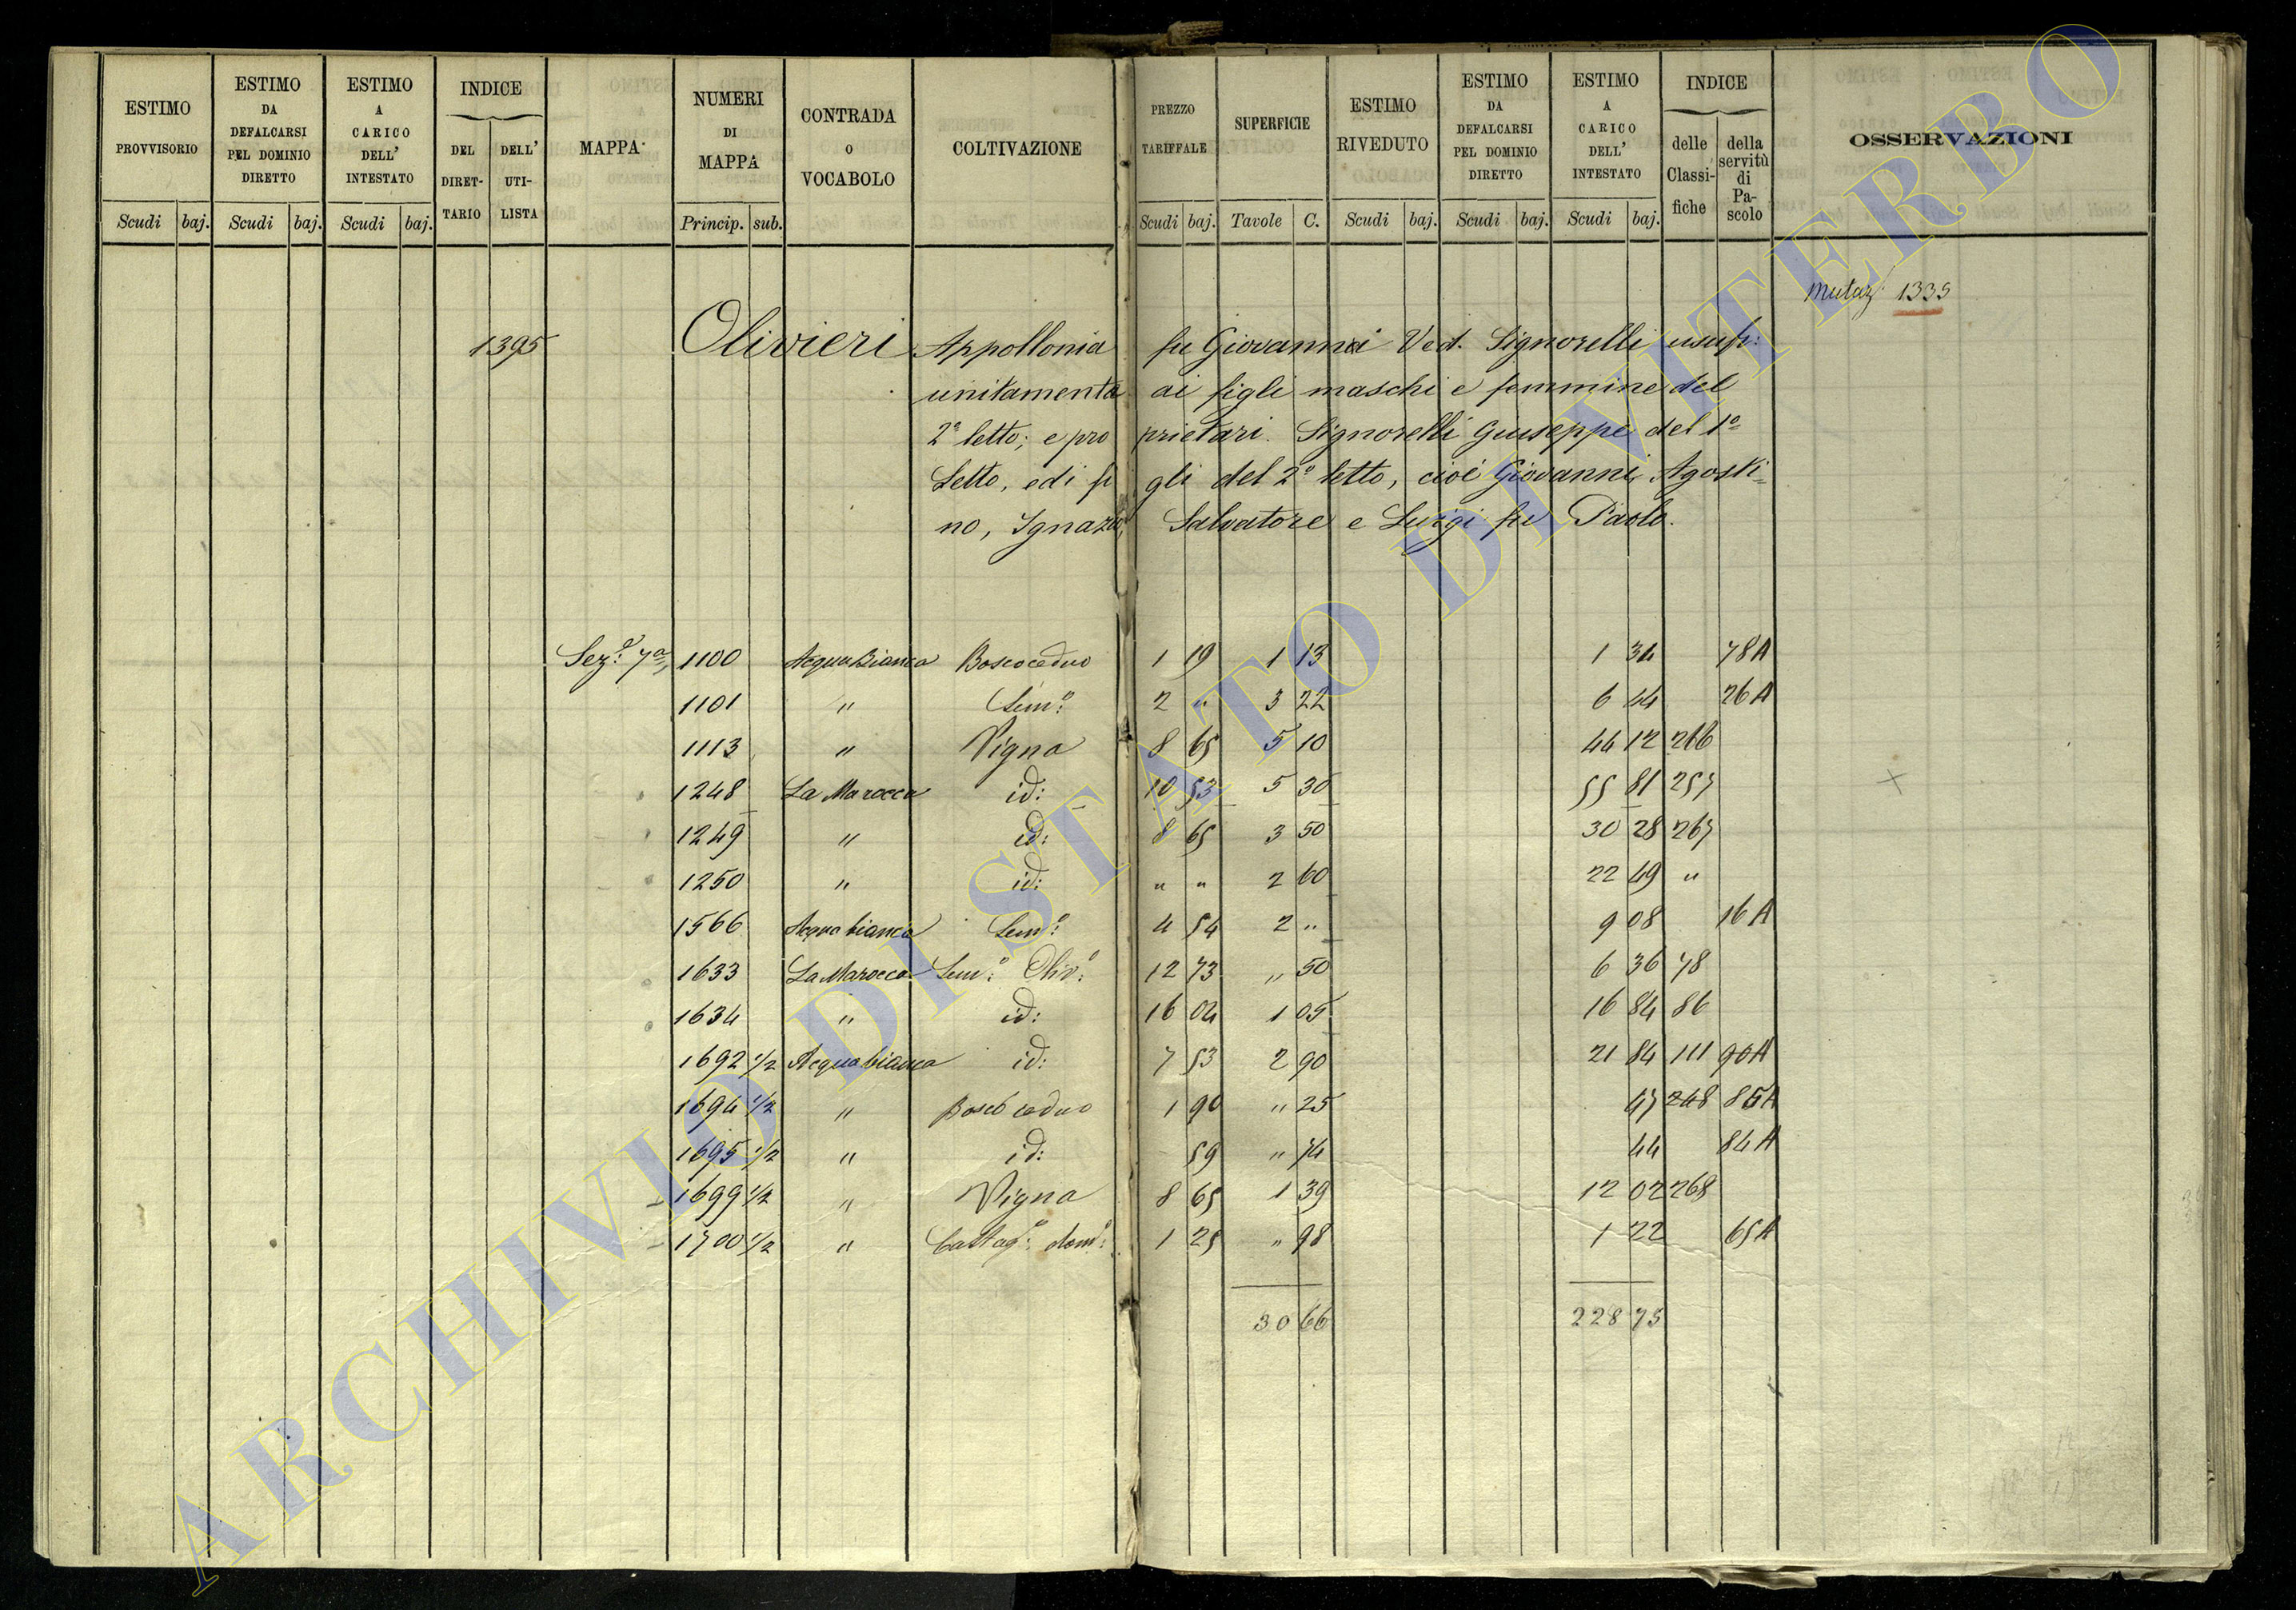 ESTIMO PROVVISORIO | ESTIMO DA DEFALCARSI PEL DOMINIO DIRETTO | ESTIMO A CARICO DELL' INTESTATO | INDICE DEL DIRET-TARIO | DELL' UTI-LISTA | MAPPA | NUMERI DI MAPPA | CONTRADA O VOCABOLO | COLTIVAZIONE | PREZZO TARIFFALE | SUPERFICIE | ESTIMO RIVEDUTO | ESTIMO DA DEFALCARSI PEL DOMINIO DIRETTO | ESTIMO A CARICO DELL' INTESTATO | INDICE delle Classi-fiche | della servitù di Pa-scolo | OSSERVAZIONI
Scudi baj. Scudi baj. Scudi baj. Princip. sub. Scudi baj. Tavole C. Scudi baj. Scudi baj. Scudi baj.
Mutaz: 1335
1395 Olivieri Appollonia fu Giovanni Ved. Signorelli usufr:
unitamenta ai figli maschi e femmine del
2º letto; e pro prietari. Signorelli Giuseppe del 1º
Letto, ed i fi gli del 2º letto, cioè Giovanni, Agosti=
no, Ignazio, Salvatore e Luigi fu Paolo.
Sezº: 7ª 1100 Acqua Bianca Bosco ceduo 1 19 1 13 1 34 78A
1101 " Semº: 2 " 3 22 6 44 26A
1113 " Vigna 8 65 5 10 44 12 266
1248 La Marocca id: 10 53 5 30 55 81 257
1249 " id: 8 65 3 50 30 28 267
1250 " id: " " 2 60 22 49 "
1566 Acqua bianca Semº: 4 54 2 " 9 08 16A
1633 La Marocca Semº: Olivº: 12 73 " 50 6 36 78
1634 " id: 16 04 1 05 16 84 86
1692 1/2 Acqua bianca id: 7 53 2 90 21 84 111 90A
1694 1/2 " Bosco ceduo 1 90 " 25 47 248 85A
1695 1/2 " id: 59 " 74 44 84A
1699 1/2 " Vigna 8 65 1 39 12 02 268
1700 1/2 " Castagº: domº: 1 25 " 98 1 22 65A
30 66 228 75
ARCHIVIO DI STATO DI VITERBO